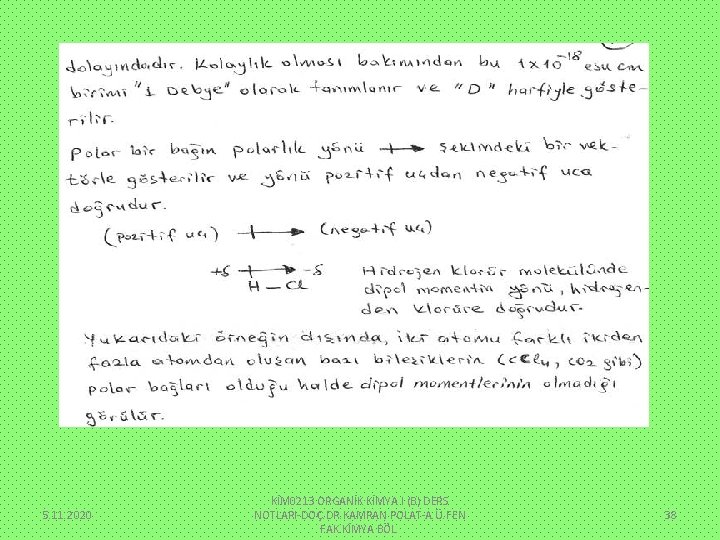 dolayındadır. Kolaylık olması bakımından bu 1x10⁻¹⁸ esu cm
birimi "1 Debye" olarak tanımlanır ve "D" harfiyle göste-
rilir.
Polar bir bağın polarlık yönü +→ şeklindeki bir vek-
törle gösterilir ve yönü pozitif uçdan negatif uca
doğrudur.
(pozitif uç) +→ (negatif uç)
+δ +→ -δ
H – Cl
Hidrojen klorür molekülünde
dipol momentin yönü, hidrojen-
den klorüre doğrudur.
Yukarıdaki örneğin dışında, iki atomu farklı ikiden
fazla atomdan oluşan bazı bileşiklerin (CCl₄, CO₂ gibi)
polar bağları olduğu halde dipol momentlerinin olmadığı
görülür.
5.11.2020
KİM0213 ORGANİK KİMYA I (B) DERS
NOTLARI-DOÇ.DR.KAMRAN POLAT-A.Ü.FEN
FAK.KİMYA BÖL
38